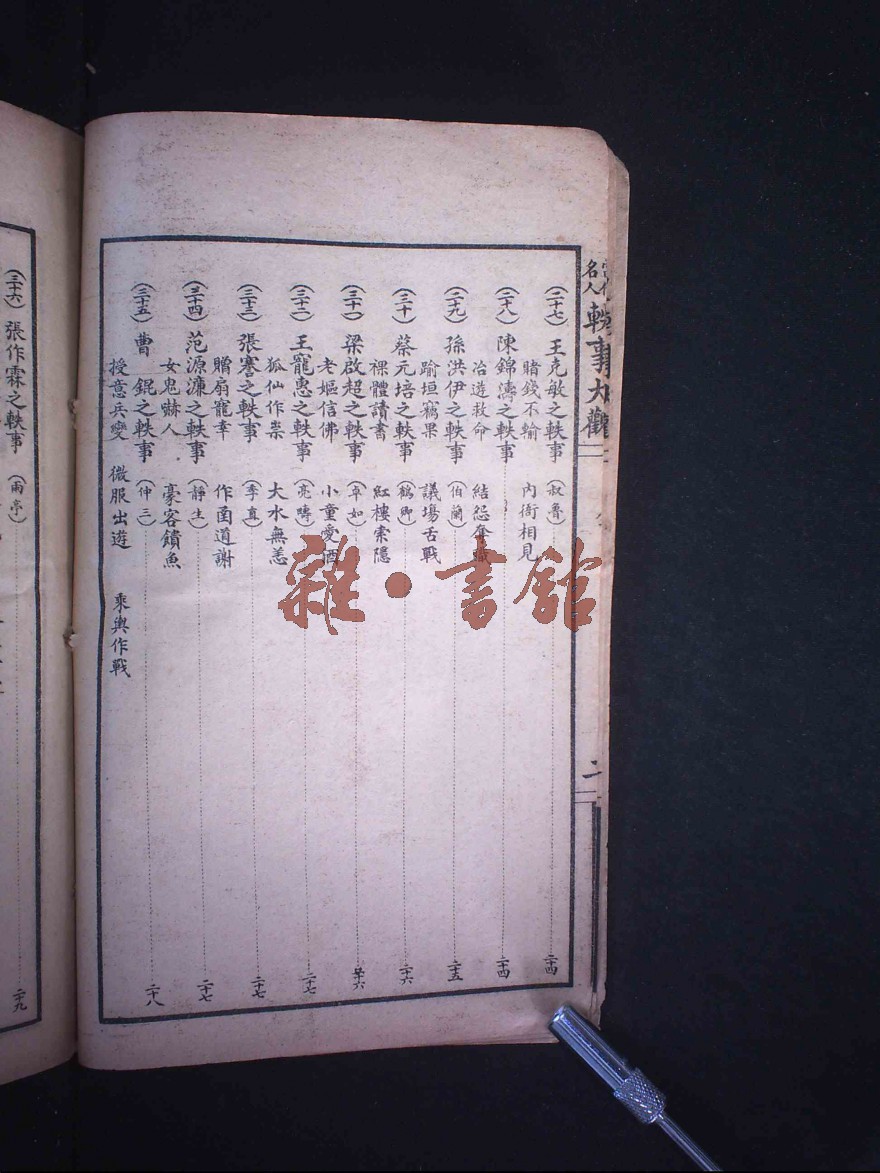 名人軼事大觀
二
(二十七) 王克敏之軼事 (叔魯) 二十四
賭錢不輸 內衙相見
(二十八) 陳錦濤之軼事 二十四
冶遊救命 結怨奪職
(二十九) 孫洪伊之軼事 (伯蘭) 二十五
踰垣竊果 議場舌戰
(三十) 蔡元培之軼事 (鶴卿) 二十六
裸體讀書 紅樓索隱
(三十一) 梁啟超之軼事 (卓如) 二十六
老嫗信佛 小童愛酒
(三十二) 王寵惠之軼事 (亮疇) 二十七
狐仙作祟 大水無恙
(三十三) 張謇之軼事 (季直) 二十七
贈扇寵幸 作函道謝
(三十四) 范源濂之軼事 (靜生) 二十七
女鬼嚇人 豪客饋魚
(三十五) 曹錕之軼事 (仲三) 二十八
授意兵變 微服出遊 乘輿作戰
(三十六) 張作霖之軼事 (雨亭) 二十九
雜·書館